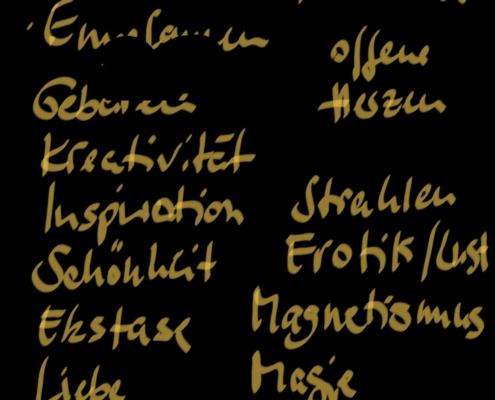 Kreativität
Inspiration
Schönheit
Ekstase
Liebe
offene
Herzen
Strahlen
Erotik/Lust
Magnetismus
Magie